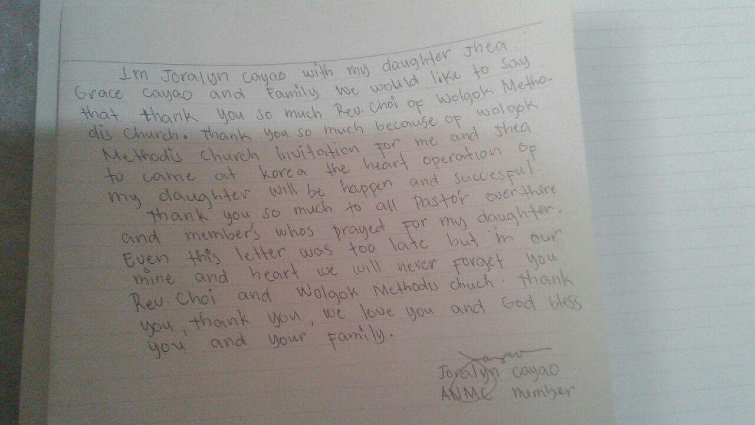 Im Joralyn Cayao with my daughter Jhea
Grace Cayao and Family we would like to say
that thank you so much Rev. Choi of Wolgok Metho-
dis Church. thank you so much because of wolgok
Methodis church invitation for me and Jhea
to came at korea the heart operation of
my daughter will be happen and succesful.
thank you so much to all Pastor over there
and member's whos prayed for my daughter.
Even this letter was too late but in our
mine and heart we will never forget you
Rev. Choi and Wolgok Methodis chuch. thank
you, thank you, we love you and God bless
you and your Family.
Joralyn Cayao
ANMC member